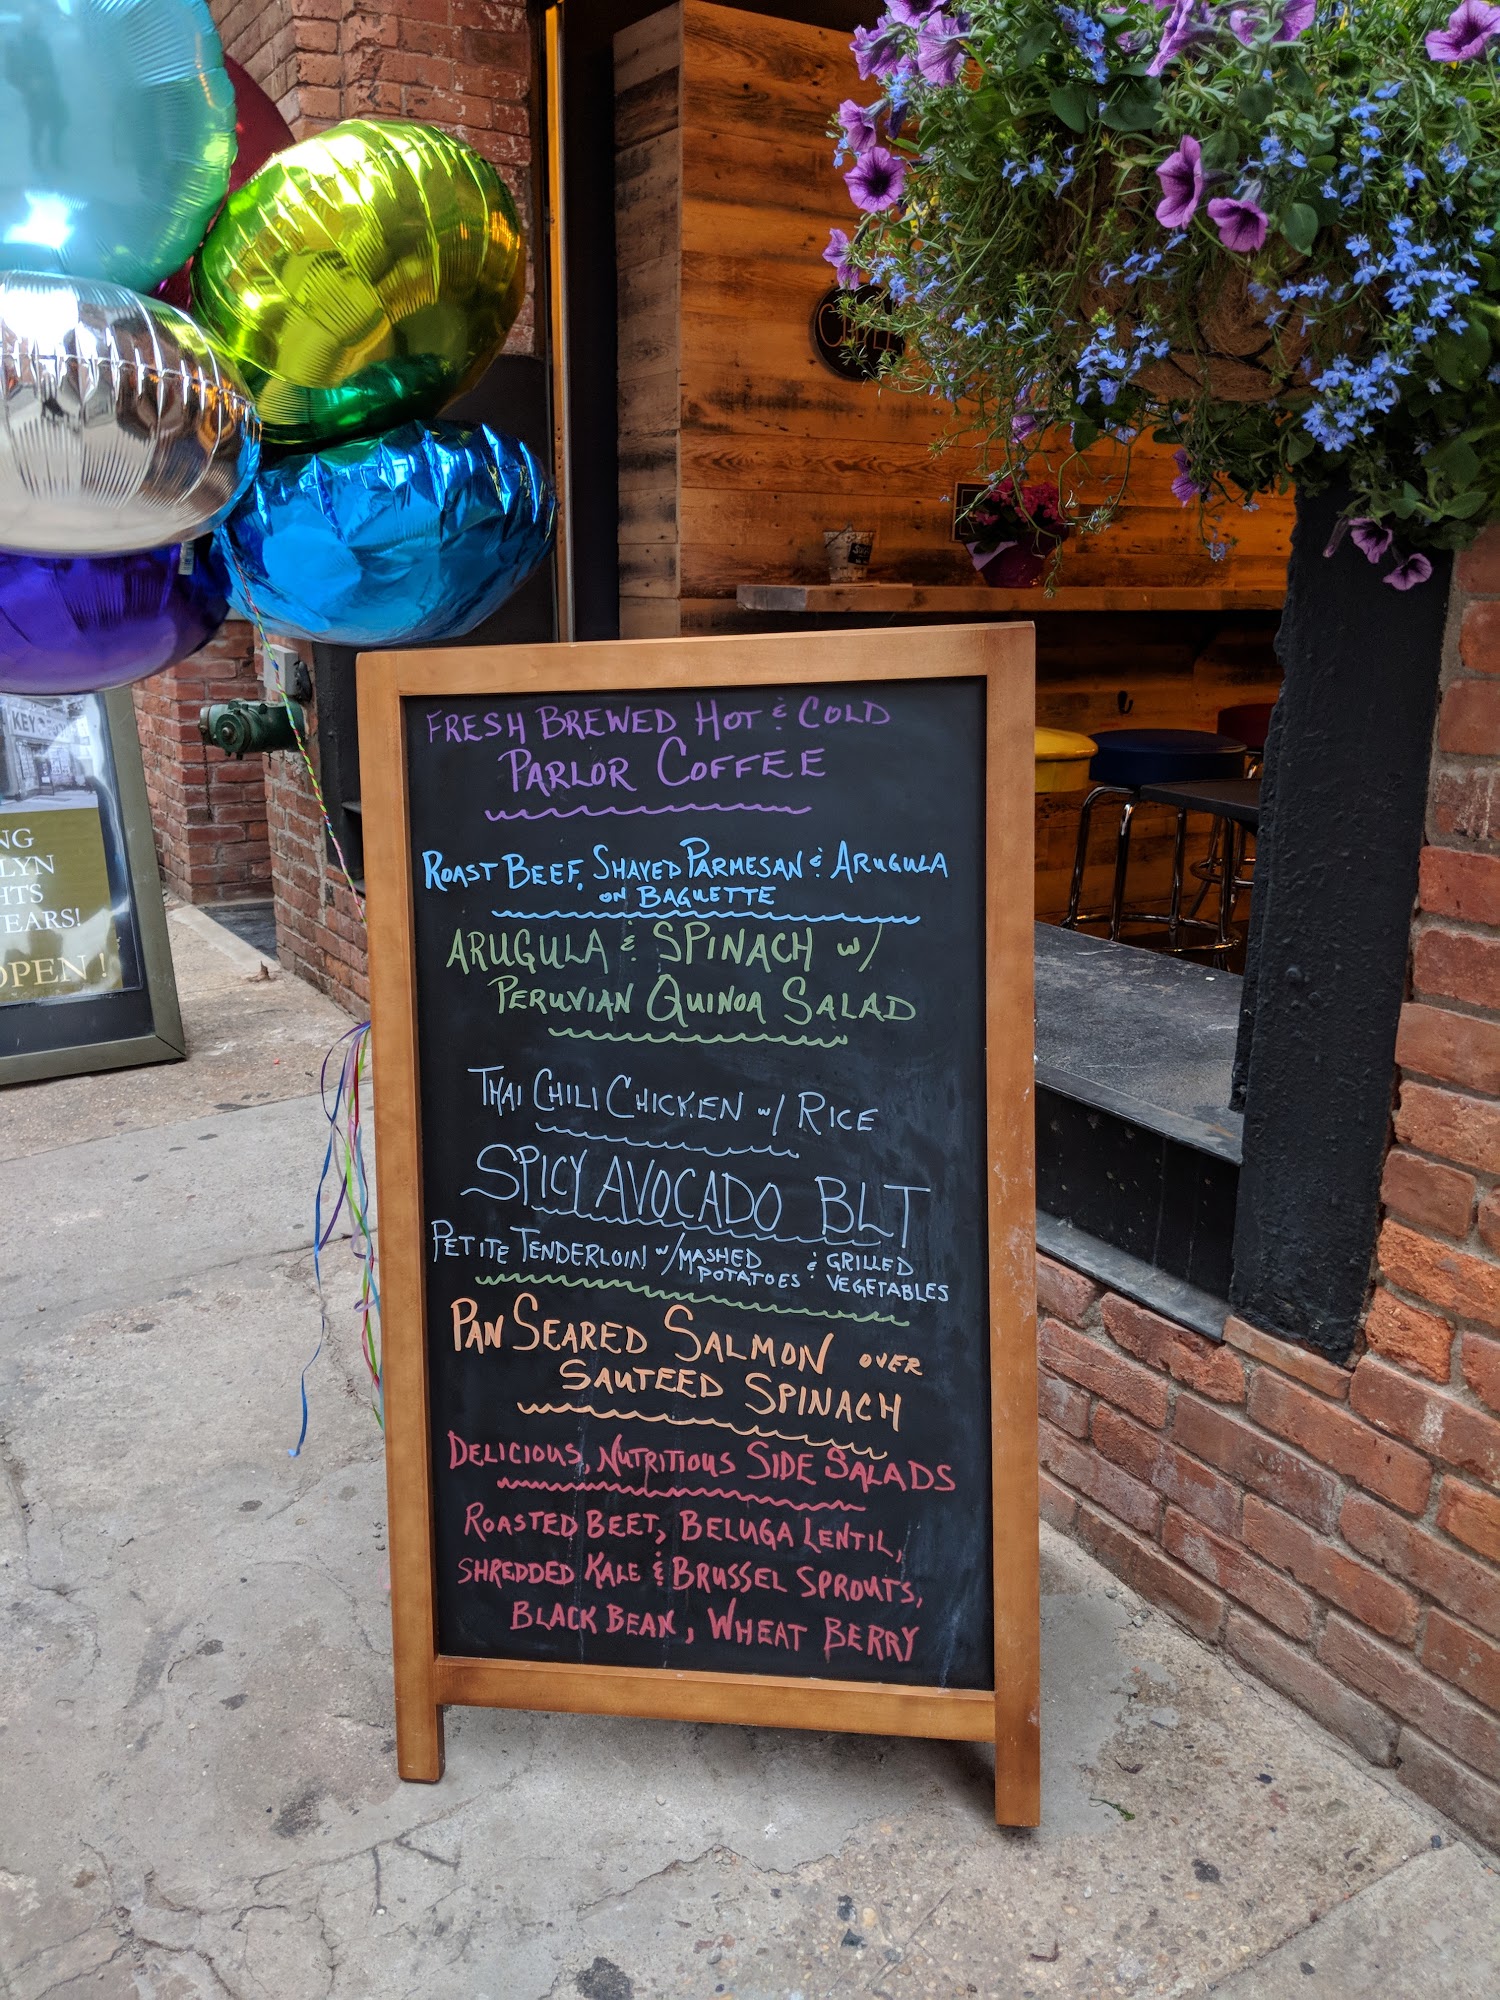 FRESH BREWED HOT & COLD
PARLOR COFFEE
ROAST BEEF, SHAVED PARMESAN & ARUGULA
ON BAGUETTE
ARUGULA & SPINACH w/
PERUVIAN QUINOA SALAD
THAI CHILI CHICKEN w/ RICE
SPICY AVOCADO BLT
PETITE TENDERLOIN w/ MASHED POTATOES & GRILLED VEGETABLES
PAN SEARED SALMON OVER
SAUTEED SPINACH
DELICIOUS, NUTRITIOUS SIDE SALADS
ROASTED BEET, BELUGA LENTIL,
SHREDDED KALE & BRUSSEL SPROUTS,
BLACK BEAN, WHEAT BERRY
KEY
NG
LYN
HTS
YEARS!
OPEN!